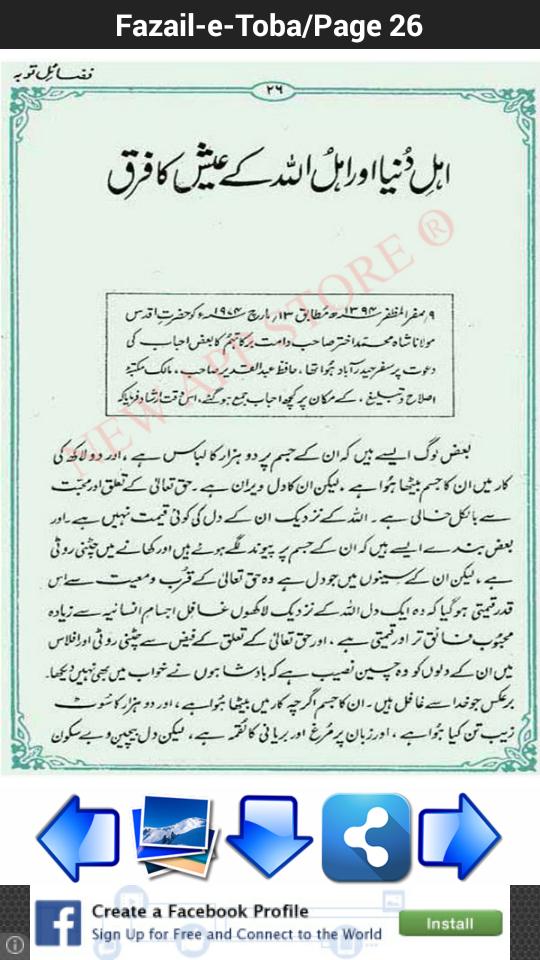 Fazail-e-Toba/Page 26
فضائل توبہ
۲۶
اہلِ دُنیا اور اہلُ اللہ کے عیش کا فرق
۹ صفر المظفر ۱۳۹۴ھ مطابق ۱۳ مارچ ۱۹۷۴ء کو حضرتِ اقدس
مولانا شاہ محمد اختر صاحب دامت برکاتہم کا بعض احباب کی
دعوت پر سفر حیدرآباد ہوا تھا، حافظ عبدالقدیر صاحب، مالک مکتبۂ
اصلاح و تبلیغ، کے مکان پر کچھ احباب جمع ہوگئے، اس وقت ارشاد فرمایا کہ
بعض لوگ ایسے ہیں کہ ان کے جسم پر دو ہزار کا لباس ہے، اور دو لاکھ کی
کار میں ان کا جسم بیٹھا ہوا ہے، لیکن ان کا دل ویران ہے۔ حق تعالیٰ کے تعلق اور محبت
سے بالکل خالی ہے۔ اللہ کے نزدیک ان کے دل کی کوئی قیمت نہیں ہے۔ اور
بعض بندے ایسے ہیں کہ ان کے جسم پر پیوند لگے ہوئے ہیں اور کھانے میں چٹنی روٹی
ہے، لیکن ان کے سینوں میں جو دل ہے وہ حق تعالیٰ کے قُرب و معیت سے اس
قدر قیمتی ہوگیا کہ وہ ایک دل اللہ کے نزدیک لاکھوں غافل اجسامِ انسانیہ سے زیادہ
محبوب فائق تر اور قیمتی ہے، اور حق تعالیٰ کے تعلق کے فیض سے چٹنی روٹی اور افلاس
میں ان کے دلوں کو وہ چین نصیب ہے کہ بادشاہوں نے خواب میں بھی نہیں دیکھا۔
برعکس جو خدا سے غافل ہیں۔ ان کا جسم اگرچہ کار میں بیٹھا ہوا ہے، اور دو ہزار کا سُوٹ
زیب تن کیا ہوا ہے، اور زبان پر مُرغ اور بریانی کا لقمہ ہے، لیکن دل بیچین و بے سکون
NEW APP STORE ®
Create a Facebook Profile
Sign Up for Free and Connect to the World
Install